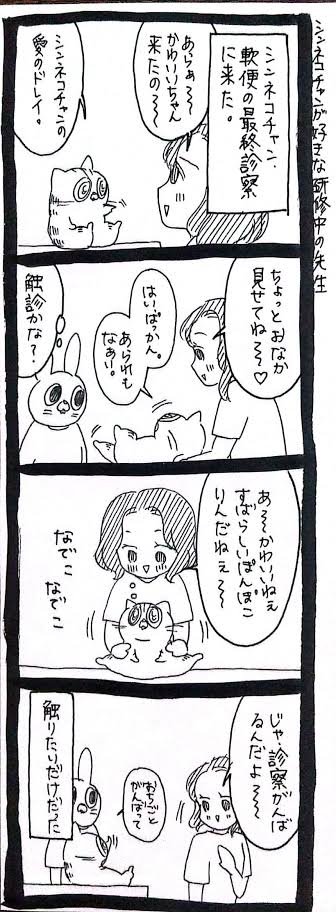 シンネコチャンが好きな研修中の先生
シンネコチャン、
軟便の最終診察
に来た。
あらぁ〜
かわいいちゃん
来たの〜〜
シンネコチャンの
愛のドレイ。
ちょっとおなか
見せてね〜〜♡
はいぱっかん。
あられも
なぁい。
触診かな？
あ〜〜かわいいねぇ
すばらしいぽんぽこ
りんだねぇ〜〜
なでこ
なでこ
じゃ、診察がんば
るんだよ〜〜
おちごと
がんばって
触りたいだけだった